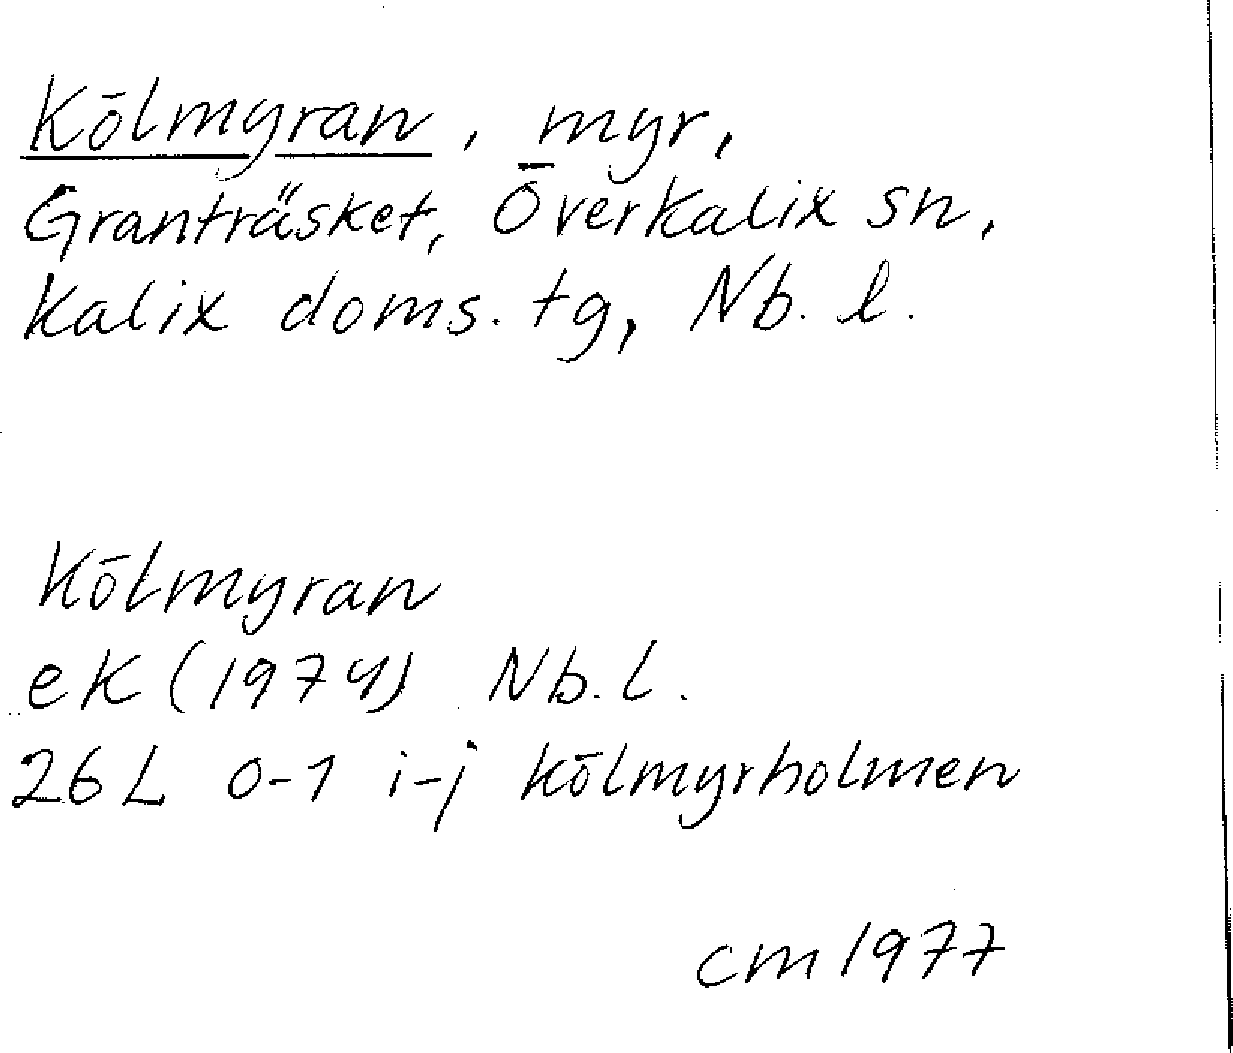 Kölmyran, myr,
Granträsket, Överkalix sn,
Kalix doms. tg, Nb. l.
Kölmyran
ek (1974) Nb. l.
26L 0-1 i-j Kölmyrholmen
cm 1977